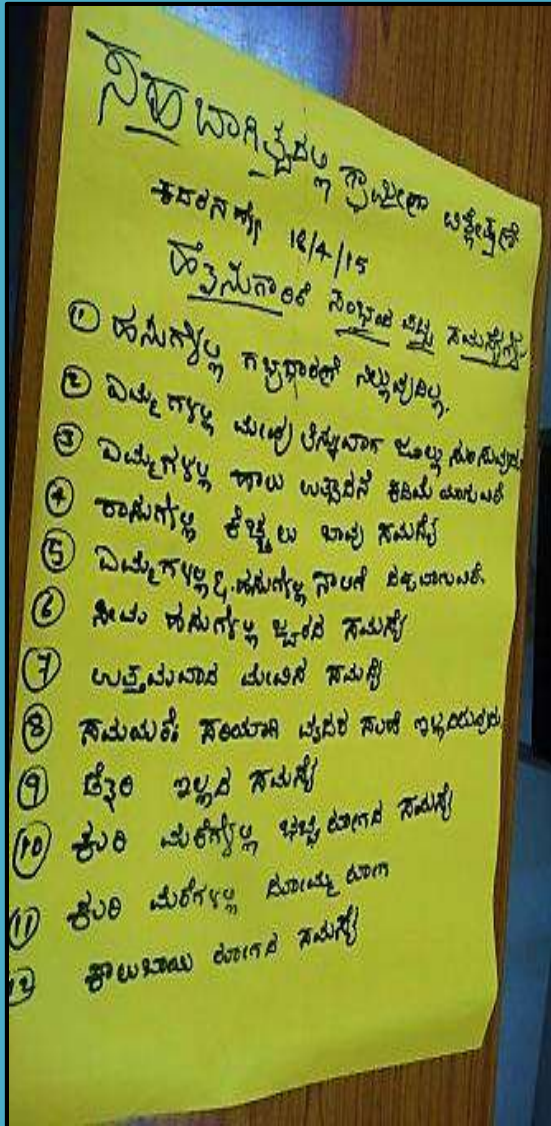 ಸಹಬಾಗಿತ್ವದಲ್ಲಿ ಗ್ರಾಮೀಣ ವಿಶ್ಲೇಷಣೆ
12/4/15
ಹೈನುಗಾರಿಕೆ ಸಂಭಂದ ಪಟ್ಟ ಸಮಸ್ಯೆಗಳು
① ಹಸುಗಳಲ್ಲಿ ಗರ್ಭಧಾರಣೆ ನಿಲ್ಲುವುದಿಲ್ಲ.
② ಎಮ್ಮೆಗಳಲ್ಲಿ ಮೇವು ತಿನ್ನುವಾಗ ಜೊಲ್ಲು ಸುರಿಸುವುದು
③ ಎಮ್ಮೆಗಳಲ್ಲಿ ಹಾಲು ಉತ್ಪಾದನೆ ಕಡಿಮೆ
④ ರಾಸುಗಳಲ್ಲಿ ಕೆಚ್ಚಲು ಬಾವು ಸಮಸ್ಯೆ
⑤ ಎಮ್ಮೆಗಳಲ್ಲಿ & ಹಸುಗಳಲ್ಲಿ ನಾಲಗೆ
⑥ ಸೀಮೆ ಹಸುಗಳಲ್ಲಿ ಜ್ವರದ ಸಮಸ್ಯೆ
⑦ ಉತ್ತಮವಾದ ಮೇವಿನ ಸಮಸ್ಯೆ
⑧ ಸಮಯಕ್ಕೆ ಸರಿಯಾಗಿ ವೈದ್ಯರ ಸಲಹೆ ಇಲ್ಲದಿರುವುದು
⑨ ಡೈರಿ ಇಲ್ಲದ ಸಮಸ್ಯೆ
⑩ ಕುರಿ ಮರಿಗಳಲ್ಲಿ ರೋಗದ ಸಮಸ್ಯೆ
⑪ ಕುರಿ ಮರಿಗಳಲ್ಲಿ ರೋಗ
12 ಕಾಲುಬಾಯಿ ರೋಗದ ಸಮಸ್ಯೆ